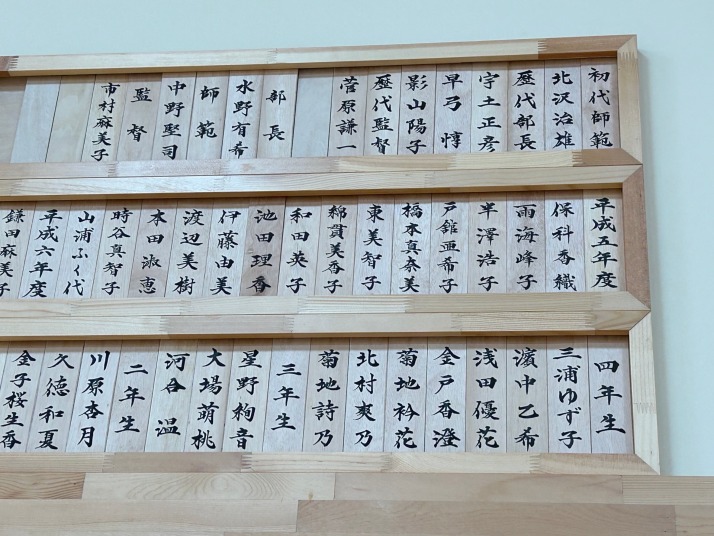 初代師範
北沢治雄
歴代部長
宇土正彦
早弓惇
影山陽子
歴代監督
菅原謙一
部長
水野有希
師範
中野堅司
監督
市村麻美子
平成五年度
保科香織
雨海峰子
半澤浩子
戸舘亜希子
橋本真奈美
東美智子
綿貫美香子
和田英子
池田理香
伊藤由美
渡辺美樹
本田淑恵
時谷真智子
山浦ふく代
平成六年度
鎌田麻美子
四年生
三浦ゆず子
濵中乙希
浅田優花
金戸香澄
菊地衿花
北村爽乃
菊地詩乃
三年生
星野絢音
大場萌桃
河合温
二年生
川原杏月
久徳和夏
金子桜生香